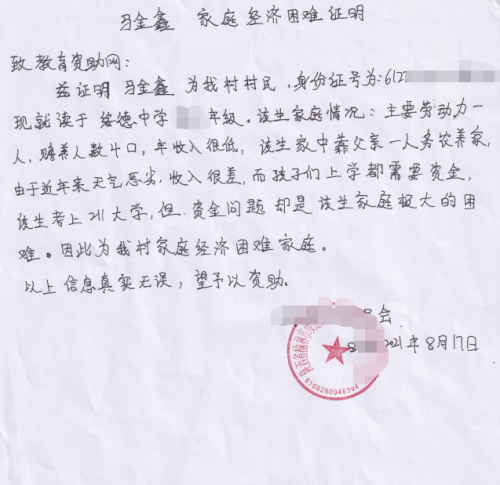 习金鑫 家庭经济困难证明
致教育资助网：
兹证明 习金鑫 为我村村民，身份证号为：6127
现就读于 绥德中学 年级。该生家庭情况：主要劳动力一
人，赡养人数4口，年收入很低，该生家中靠父亲一人务农养家，
由于近年来天气恶劣，收入很差，而孩子们上学都需要资金，
该生考上211大学，但资金问题却是该生家庭极大的困
难。因此为我村家庭经济困难家庭。
以上信息真实无误，望予以资助。
会
2021年8月17日
6108260046394